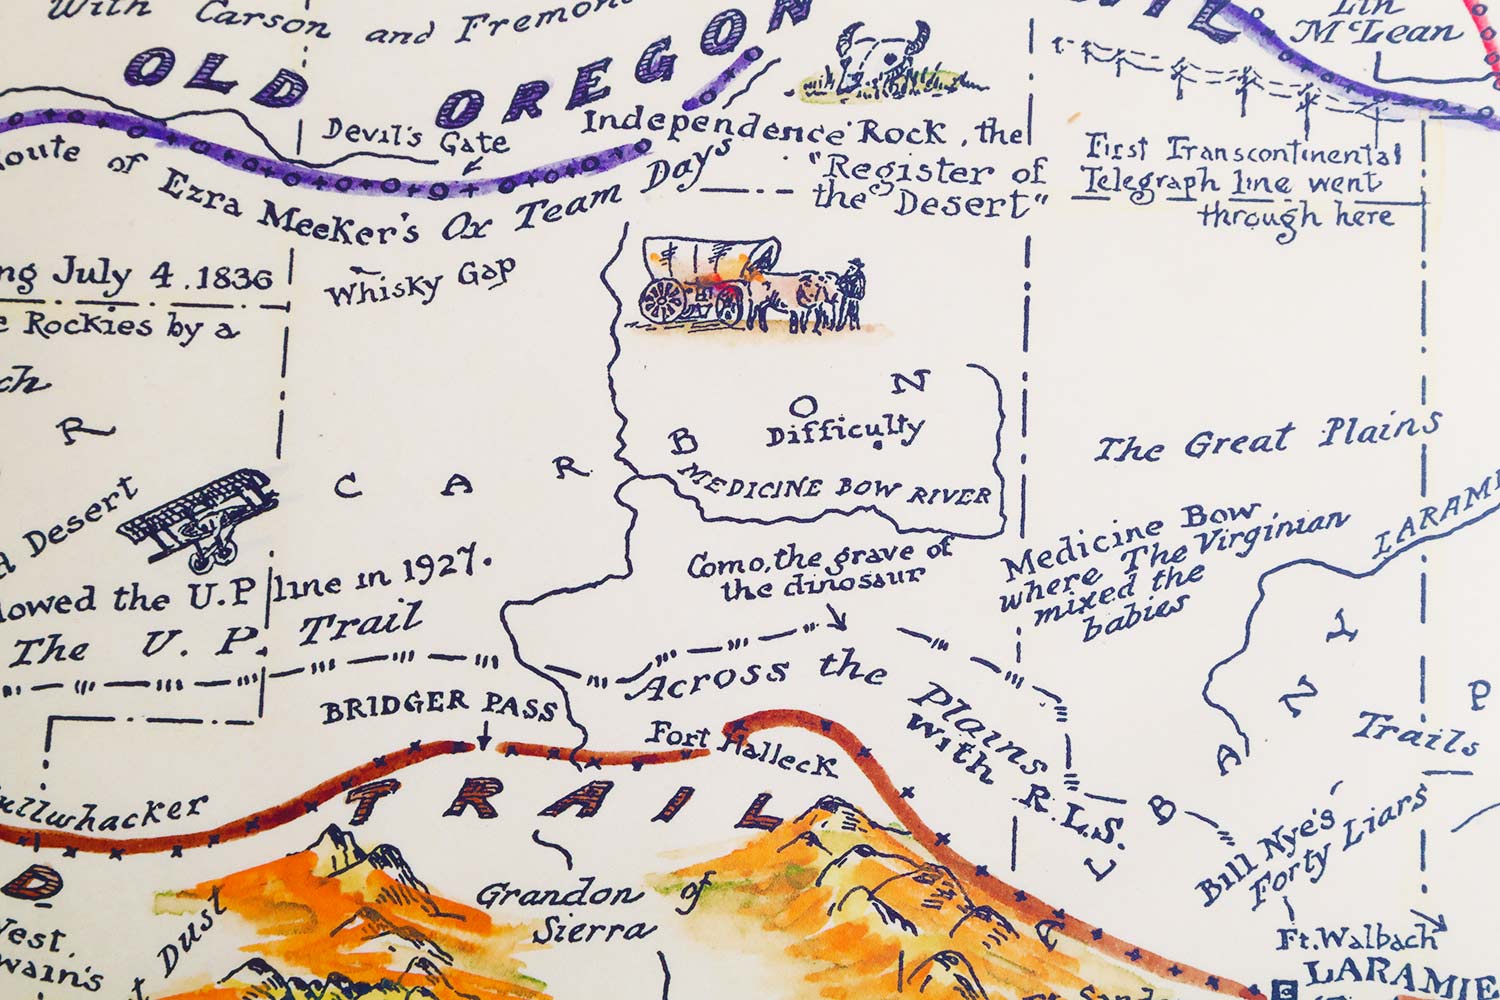 With Carson and Fremont
OLD OREGON
Lin
McLean
Devil's Gate
Independence Rock, the
"Register of
the Desert"
First Transcontinental
Telegraph line went
through here
Route of Ezra Meeker's Ox Team Days
July 4, 1836
Whisky Gap
Rockies by a
R
C A R B O N
Difficulty
MEDICINE BOW RIVER
The Great Plains
Desert
the U.P. line in 1927.
The U. P. Trail
Como, the grave of
the dinosaur
Medicine Bow
where The Virginian
mixed the
babies
Across the Plains
with R.L.S.
BRIDGER PASS
Fort Halleck
TRAIL
A L B A N Y
Trails
P
Bill Nye's
Forty Liars
Grandon of
Sierra
D
Dust
Ft. Walbach
LARAMIE